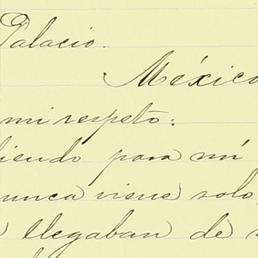 Palacio.
México
mi respeto:
iendo para mí
nunca viene solo,
llegaban de